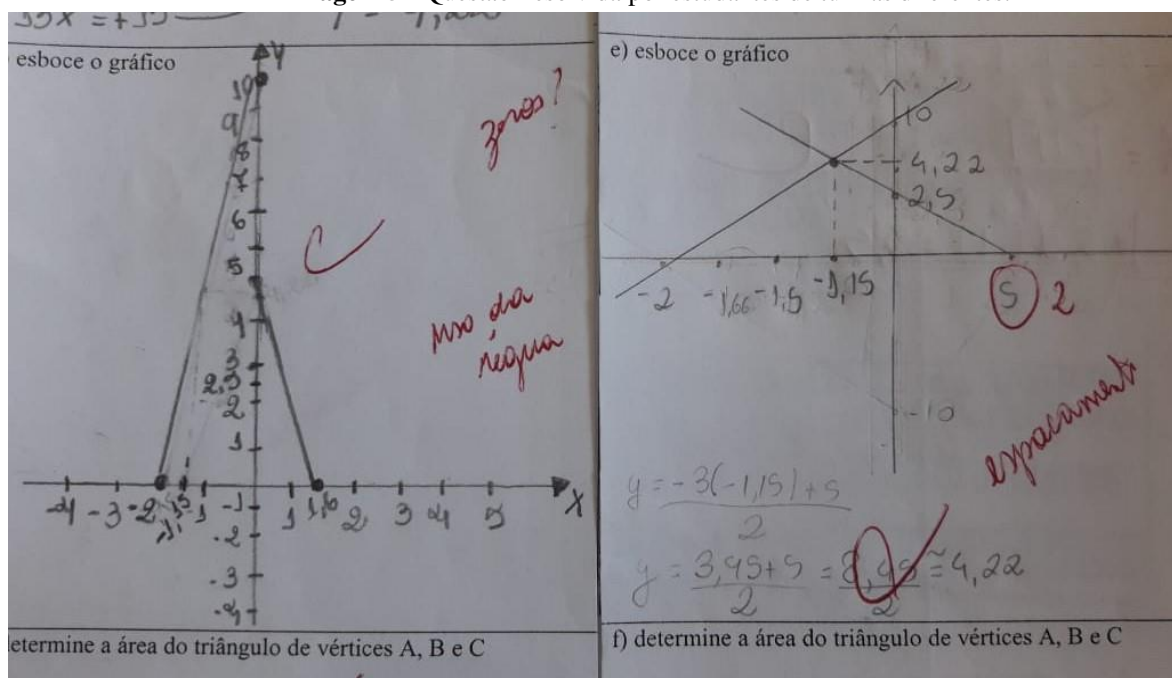 esboce o gráfico
Y
10
9
8
7
6
5
4
3
2,3
2
1
-4 -3 -2 1,5 -1 -1 1 1,6 2 3 4 5 X
-2
-3
-4
zeros?
C
uso da
régua
etermine a área do triângulo de vértices A, B e C
e) esboce o gráfico
10
4,22
2,5
-2 -1,66 -1,5 -1,15 5 2
-10
espaçament
y = -3(-1,15) + 5
2
y = 3,45+5 = 8,45 ≅ 4,22
2 2
f) determine a área do triângulo de vértices A, B e C